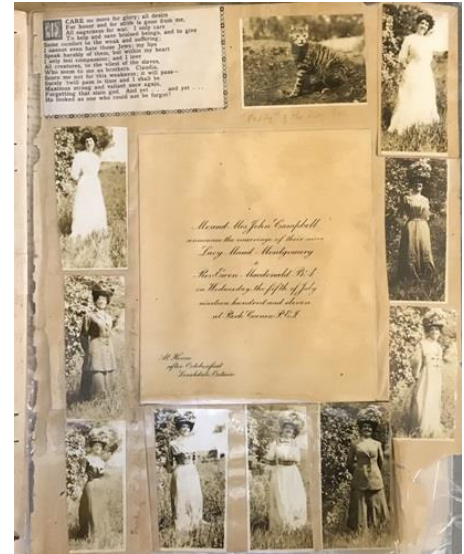 I CARE no more for glory; all desire
For honor and for strife is gone from me,
All eagerness for war. I only care
To help and save bruised beings, and to give
Some comfort to the weak and suffering;
I cannot even hate those Jews; my lips
Speak harshly of them, but within my heart
I only feel compassion; and I love
All creatures, to the vilest of the slaves,
Who seem to me as brothers. Claudia,
Scorn me not for this weakness; it will pass—
Surely 'twill pass in time and I shall be
Maximus strong and valiant once again,
Forgetting that slain god. And yet . . . and yet . . .
He looked as one who could not be forgot!
Mr and Mrs John Campbell
announce the marriage of their niece
Lucy Maud Montgomery
to
Rev Ewen Macdonald B.A.
on Wednesday, the fifth of July
nineteen hundred and eleven
at Park Corner P.E.I.
At Home
after October first
Leaskdale, Ontario